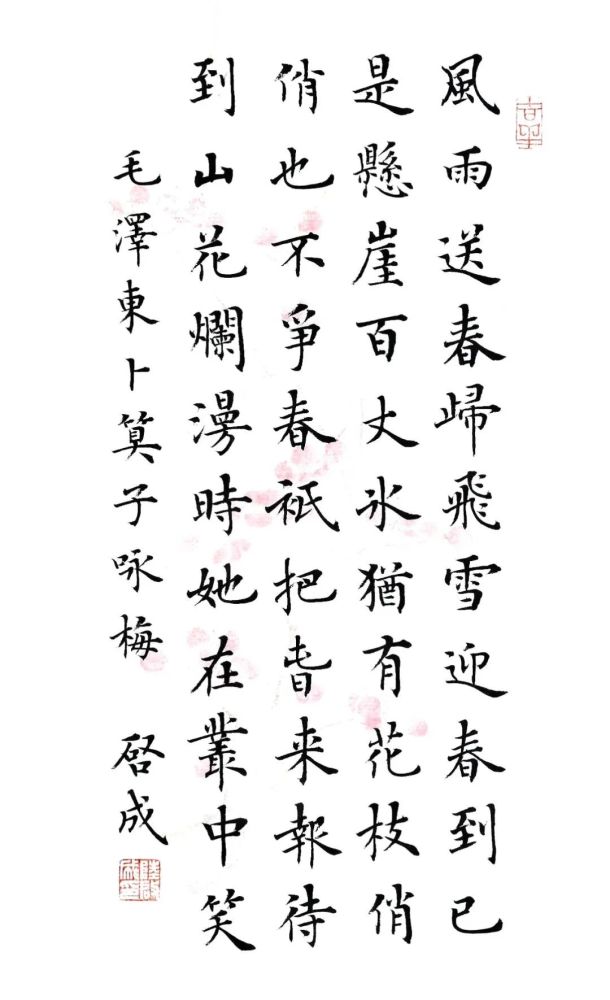 風雨送春歸飛雪迎春到已
是懸崖百丈冰猶有花枝俏
俏也不爭春衹把旾来報待
到山花爛漫時她在叢中笑
毛澤東卜算子咏梅 啓成